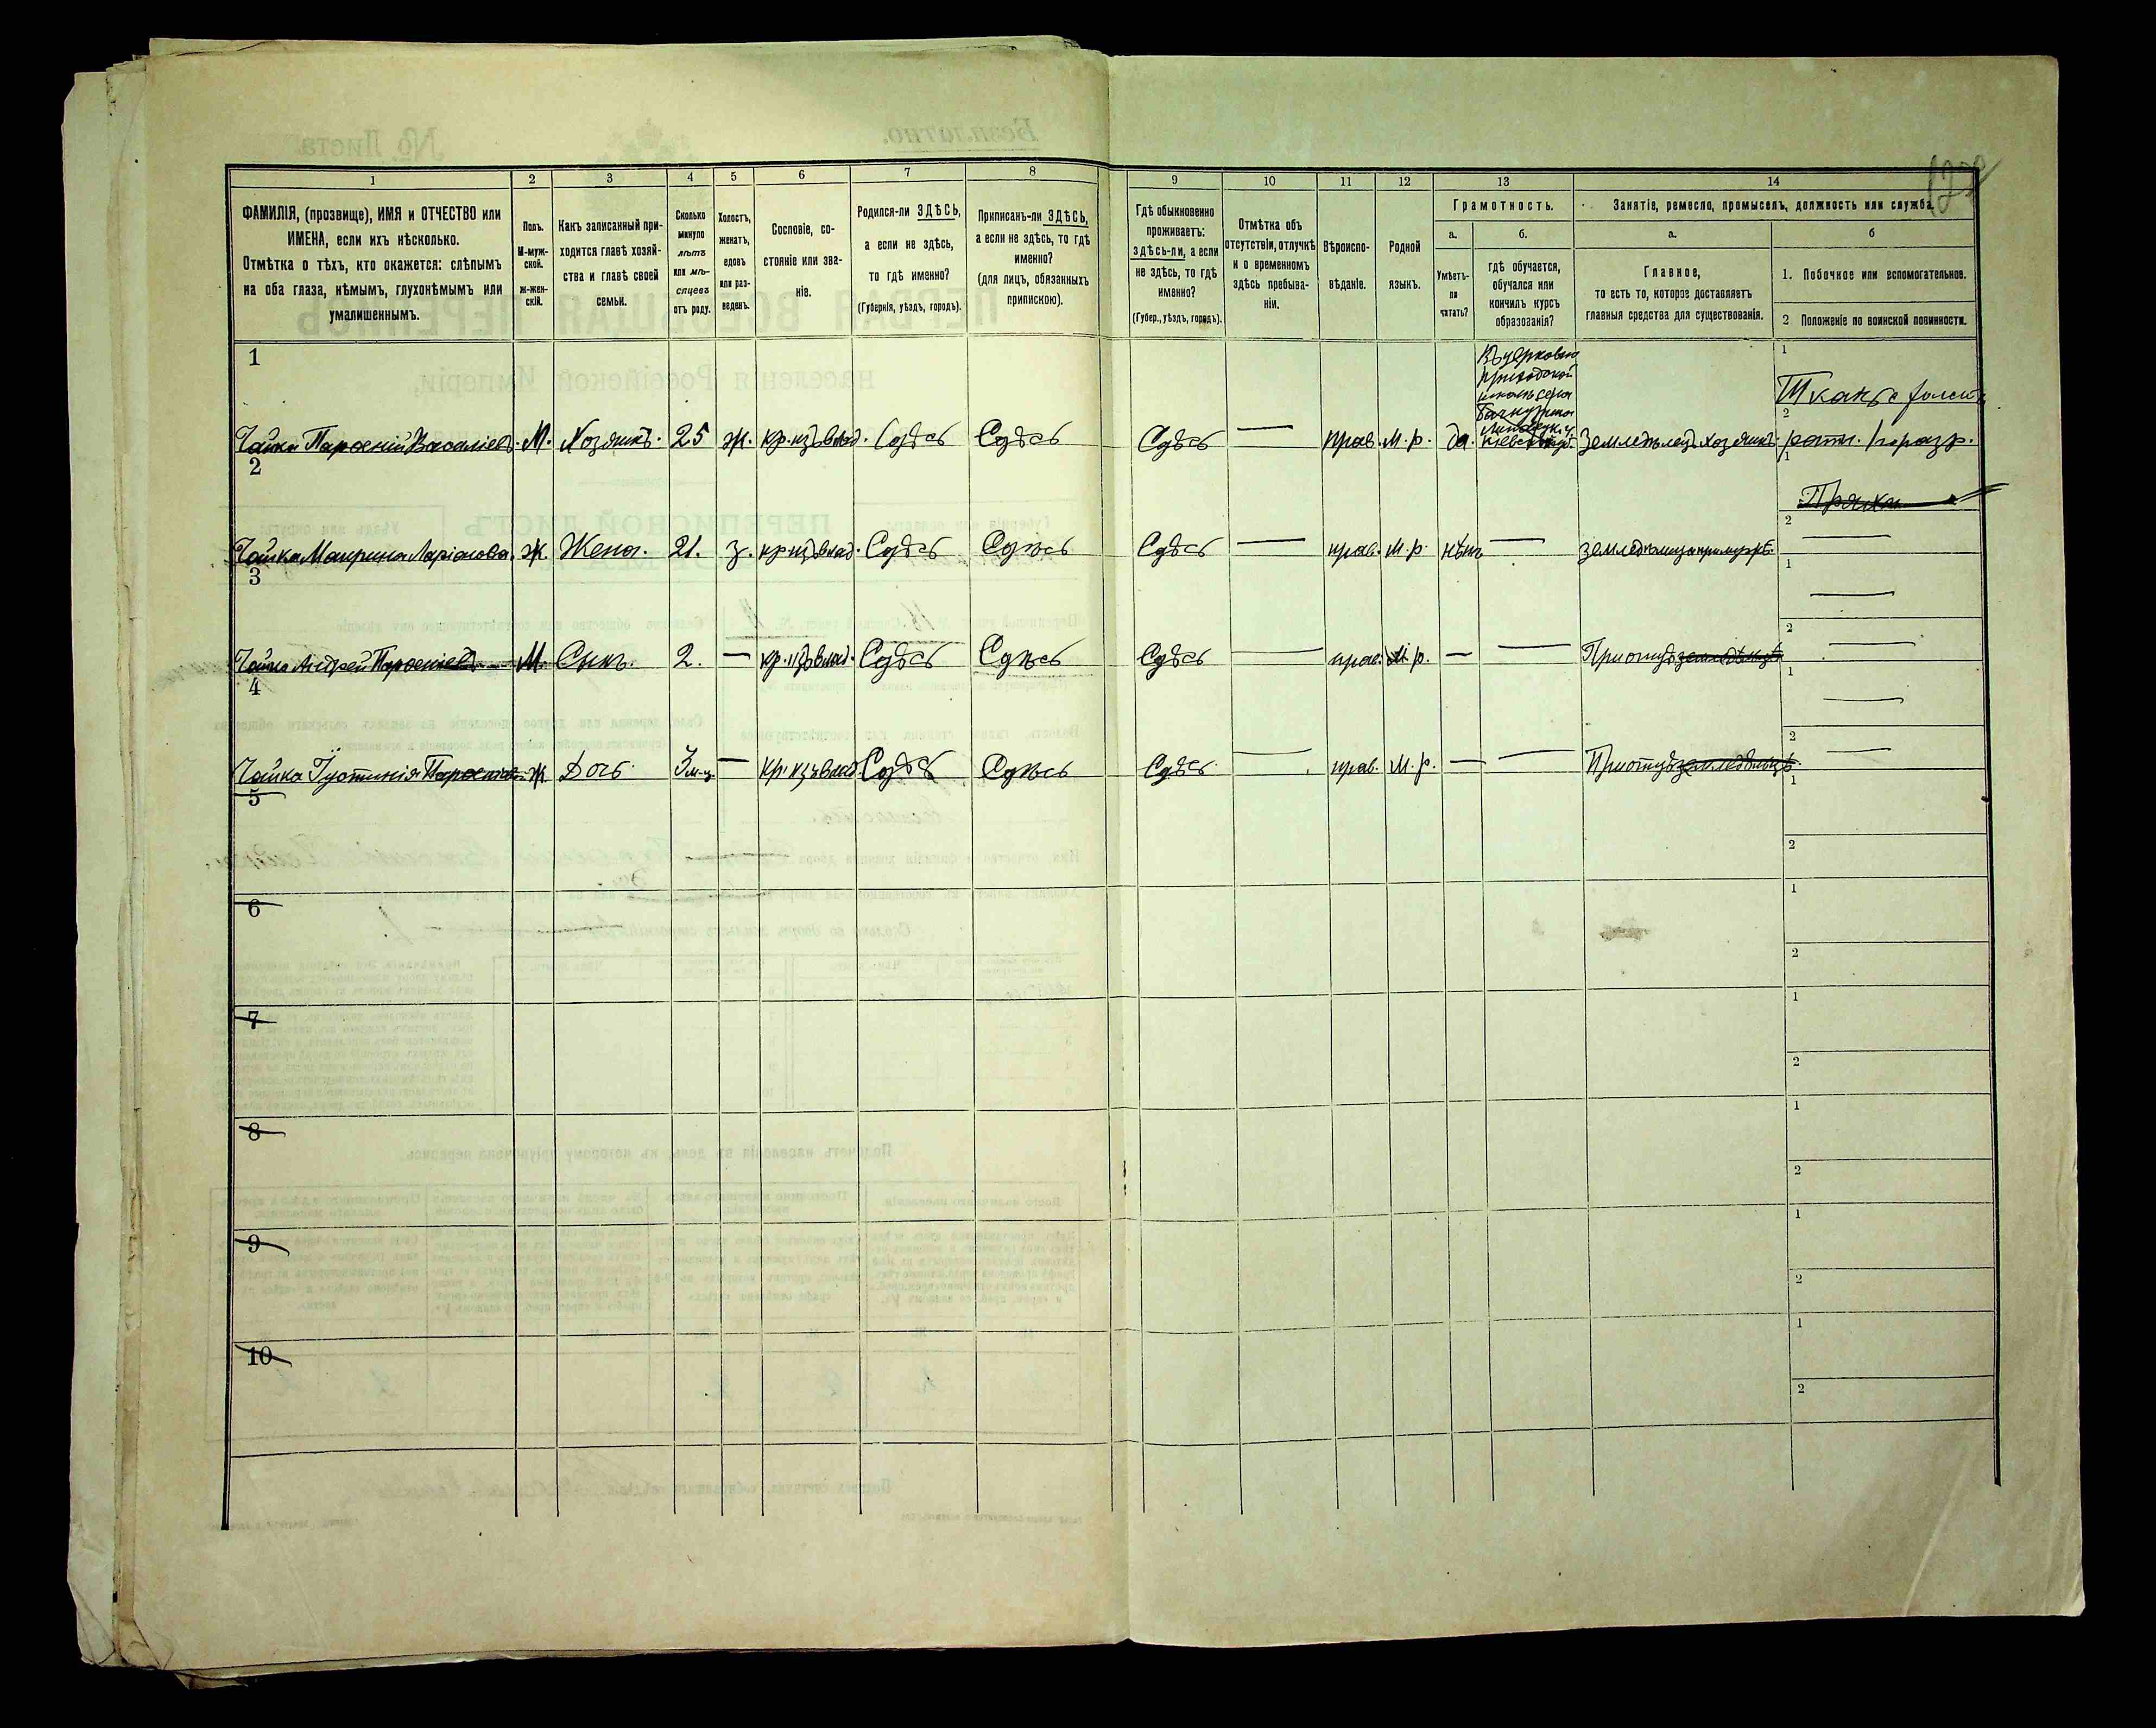 1 2 3 4 5 6 7 8 9 10 11 12 13 14
ФАМИЛІЯ, (прозвище), ИМЯ и ОТЧЕСТВО или
ИМЕНА, если ихъ нѣсколько.
Отмѣтка о тѣхъ, кто окажется: слѣпымъ
на оба глаза, нѣмымъ, глухонѣмымъ или
умалишеннымъ.
Полъ.
М-муж-
ской.
ж-жен-
скій.
Какъ записанный при-
ходится главѣ хозяй-
ства и главѣ своей
семьи.
Сколько
минуло
лѣтъ
или мѣ-
сяцевъ
отъ роду.
Холостъ,
женатъ,
вдовъ
или раз-
веденъ.
Сословіе, со-
стояніе или зва-
ніе.
Родился-ли ЗДѢСЬ,
а если не здѣсь,
то гдѣ именно?
(Губернія, уѣздъ, городъ).
Приписанъ-ли ЗДѢСЬ,
а если не здѣсь, то гдѣ
именно?
(для лицъ, обязанныхъ
припискою).
Гдѣ обыкновенно
проживаетъ:
здѣсь-ли, а если
не здѣсь, то гдѣ
именно?
(Губер., уѣздъ, городъ).
Отмѣтка объ
отсутствіи, отлучкѣ
и о временномъ
здѣсь пребыва-
ніи.
Вѣроиспо-
вѣданіе.
Родной
языкъ.
Грамотность.
а.
Умѣетъ-
ли
читать?
б.
гдѣ обучается,
обучался или
кончилъ курсъ
образованія?
Занятіе, ремесло, промыселъ, должность или служба.
а.
Главное,
то есть то, которое доставляетъ
главныя средства для существованія.
б
1. Побочное или вспомогательное.
2 Положеніе по воинской повинности.
1
Въ церковно
приходской
школѣ села
Кіевской губ.
1 Ткачъ
2
Чайка Парѳеній Василіевъ. М. Хозяинъ. 25 ж. кр. изъ влад. Сдѣсь Сдѣсь Сдѣсь — прав. М. р. да. Земледѣлецъ хозяинъ. ратн. 1 разр.
2
1 Пряха
2
Чайка Маврина Ларіонова. Ж Жена. 21. з. кр. изъ влад. Сдѣсь Сдѣсь Сдѣсь — прав. М. р. нѣтъ —
3
1 —
2 —
Чайка Андрей Парѳеніевъ М. Сынъ. 2. — кр. изъ влад. Сдѣсь Сдѣсь Сдѣсь — прав. М. р. — — При отцѣ земледѣльцѣ
4
1 —
2 —
Чайка Іустинія Ж Дочь. 3 м-ц. — кр. изъ влад Сдѣсь Сдѣсь Сдѣсь — прав. М. р. — — При отцѣ земледѣльцѣ
5
1
2
6
1
2
7
1
2
8
1
2
9
1
2
10
1
2